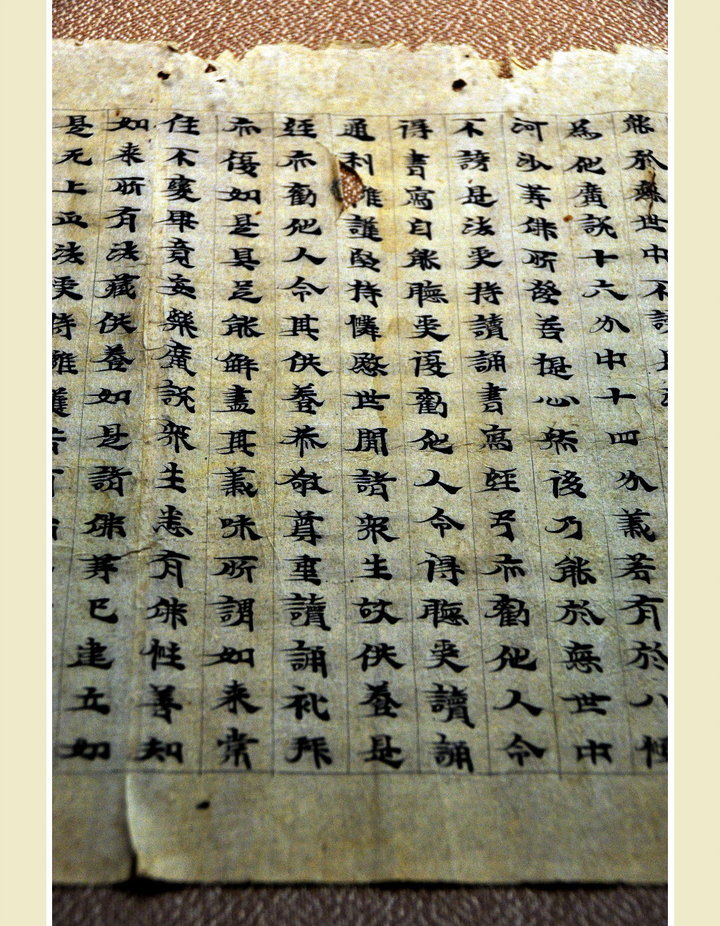 能於惡世中不謗是
為他廣說十六分中十四分義若有於八恒
河沙等佛所發菩提心然後乃能於惡世中
不謗是法受持讀誦書寫經弓亦勸他人令
得書寫自能聽受復勸他人令得聽受讀誦
通利擁護堅持憐愍世間諸眾生故供養是
經亦勸他人令其供養恭敬尊重讀誦礼拜
亦復如是具足能解盡其義味所謂如来常
住不變畢竟安樂廣說眾生悉有佛性善知
如来所有法藏供養如是諸佛等已建立如
是无上正法受持擁護若有